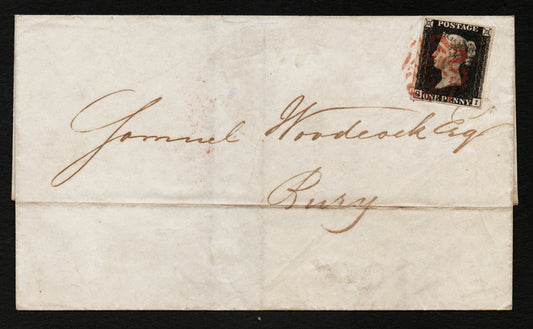 POSTAGE
ONE PENNY
Samuel Woodcock Esq
Bury